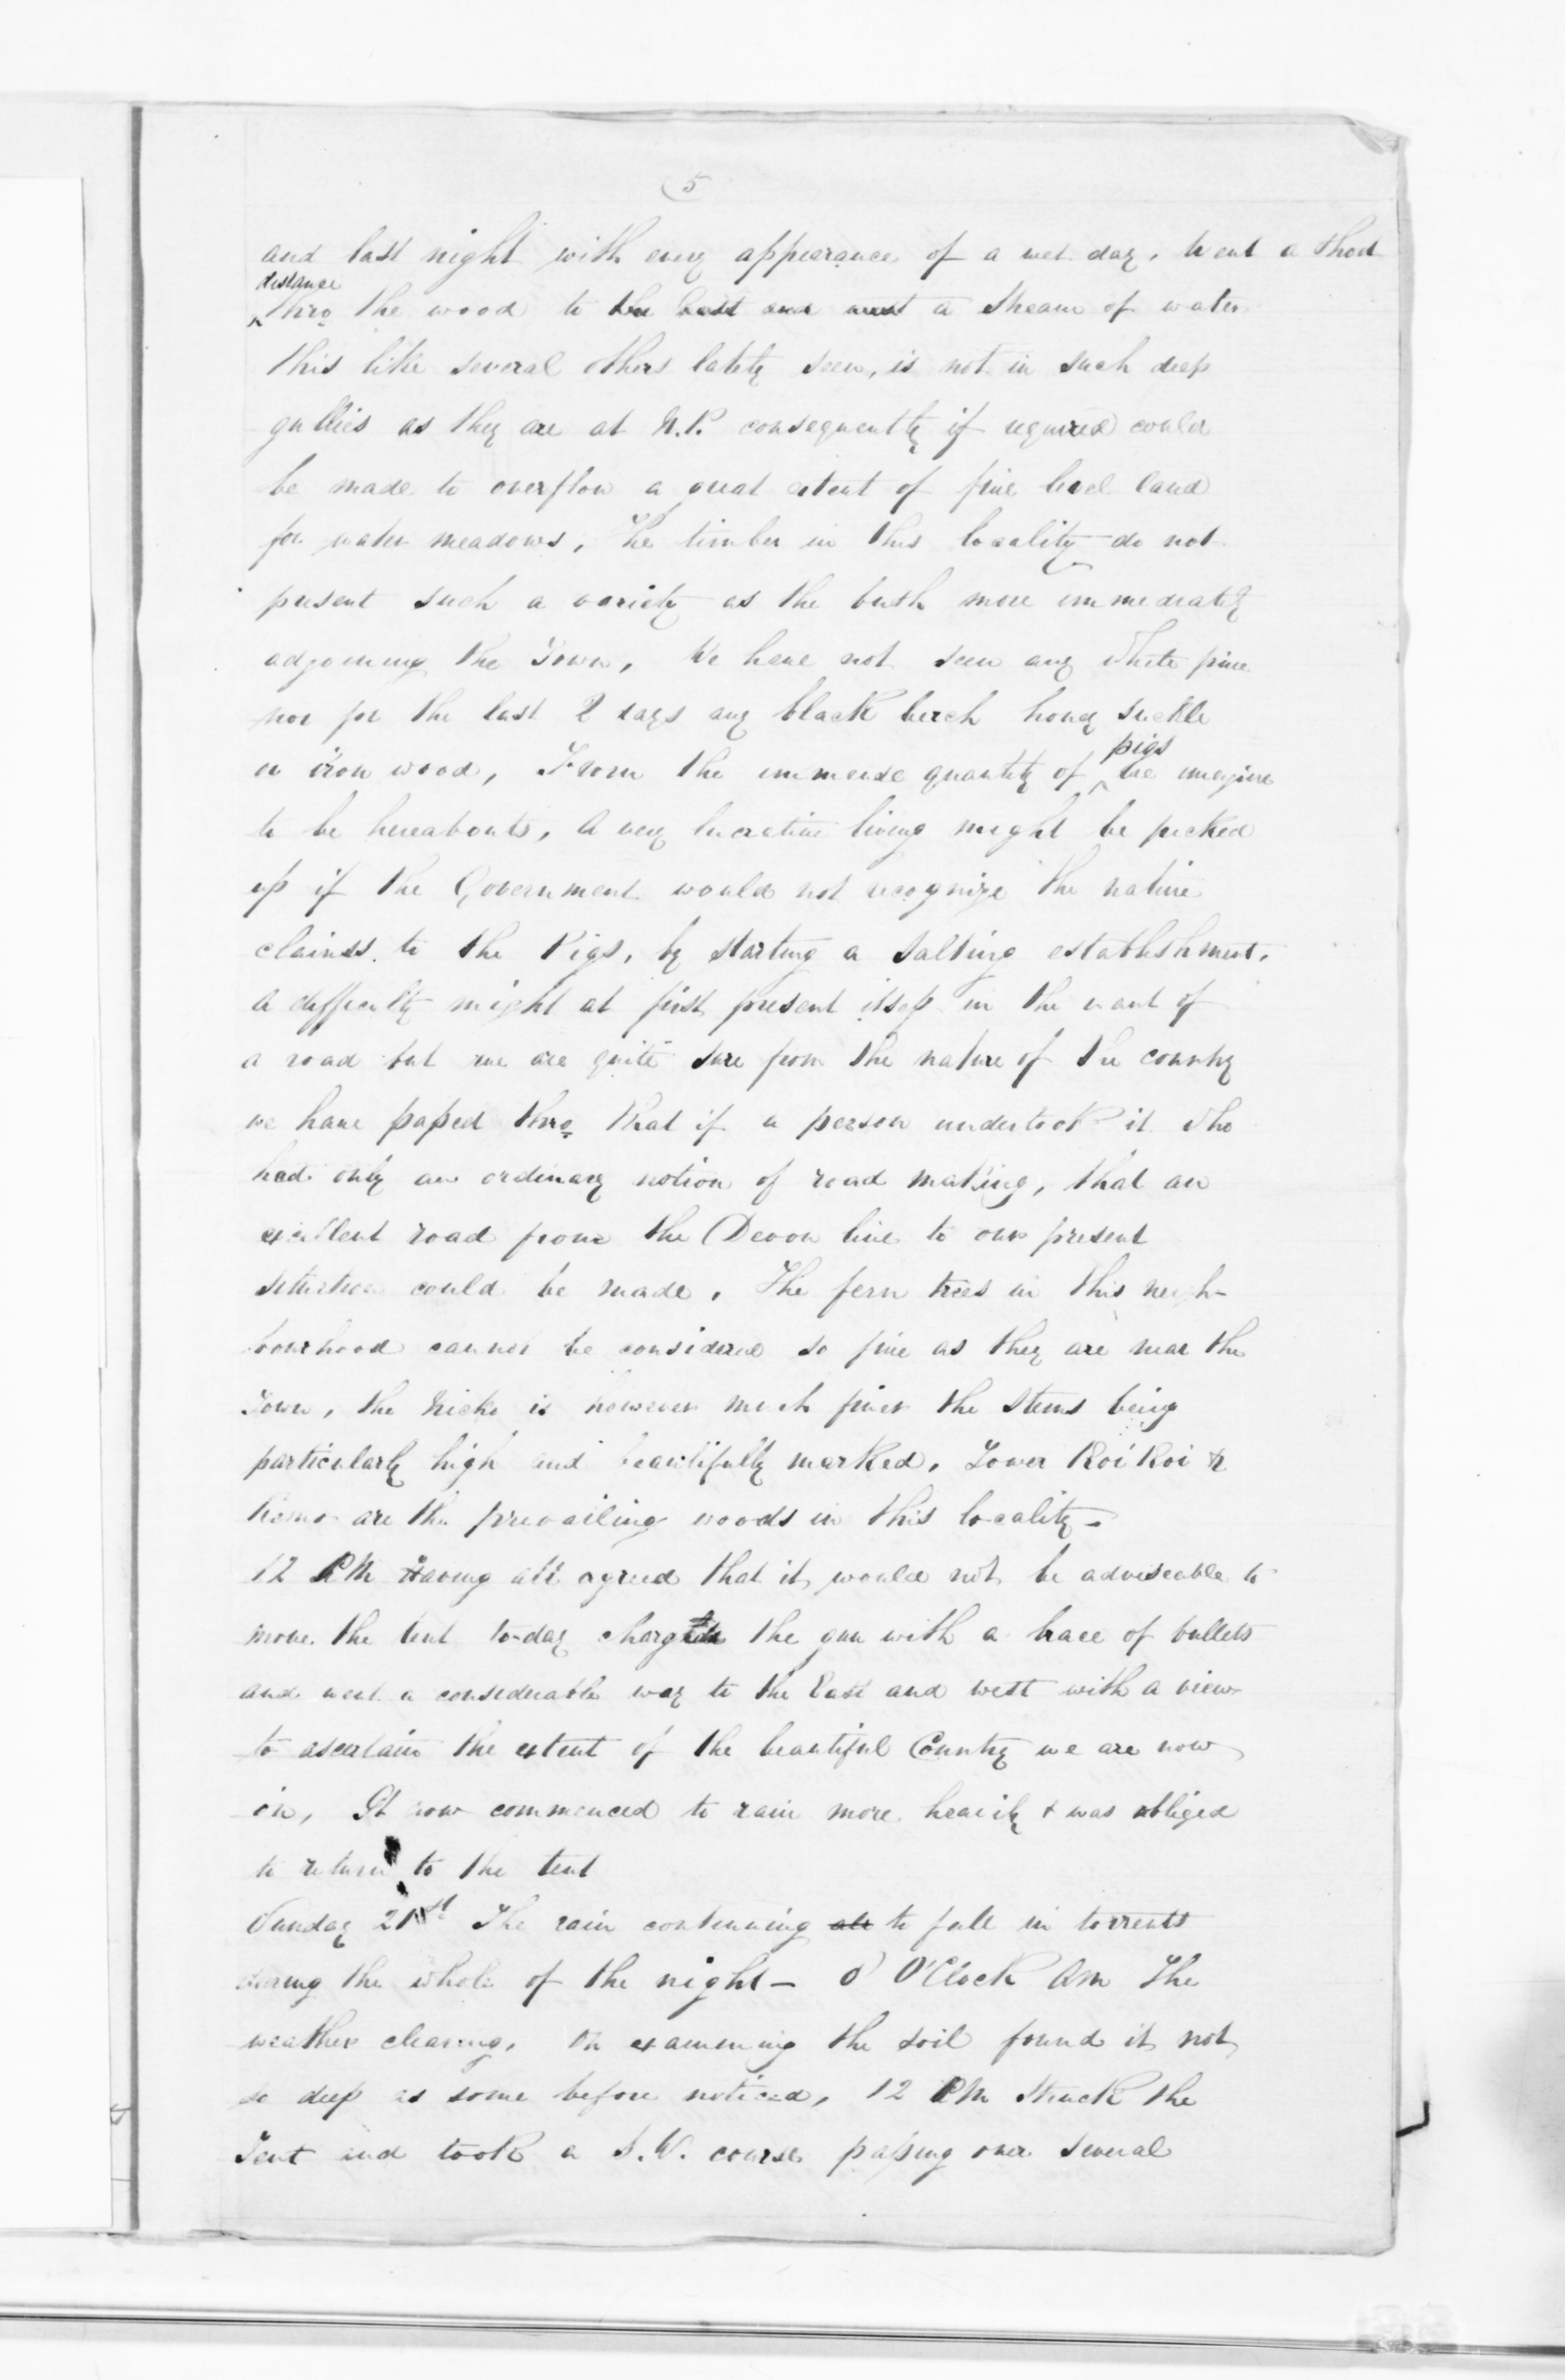 5
and last night with every appearance of a wet day, Went a short
distance
thro the wood to the East and west a stream of water
this like several others lately seen, is not in such deep
gullies as they are at N.P. consequently if required could
be made to overflow a great extent of fine level land
for water meadows, The timber in this locality do not
present such a variety as the bush more immediately
adjoining the Town, We have not seen any White pine
nor for the last 2 days any black birch honey suckle
or iron wood, From the immense quantity of we imagine
pigs
to be hereabouts, A very lucrative living might be picked
up if the Government would not recognize the native
claims to the Pigs, by starting a salting establishment.
A difficulty might at first present itself in the want of
a road but we are quite sure from the nature of the country
we have passed thro that if a person undertook it who
had only an ordinary notion of road making, that an
excellent road from the Devon line to our present
situation could be made. The fern trees in this neigh-
bourhood cannot be considered so fine as they are near the
Town, the Nicko is however much finer the stems being
particularly high and beautifully marked. Tower Koi Koi &
are the prevailing woods in this locality-
12 PM Having all agreed that it would not be adviseable to
move the tent to-day charged the gun with a brace of bullets
and went a considerable way to the East and west with a view
to ascertain the extent of the beautiful Country we are now
in, It now commenced to rain more heavily & was obliged
to return to the tent
Sunday 21st The rain continuing to fall in torrents
during the whole of the night- O'Clock Am The
weather clearing. On examining the soil found it not
so deep as some before noticed, 12 PM Struck the
Tent and took a S.W. course passing over several